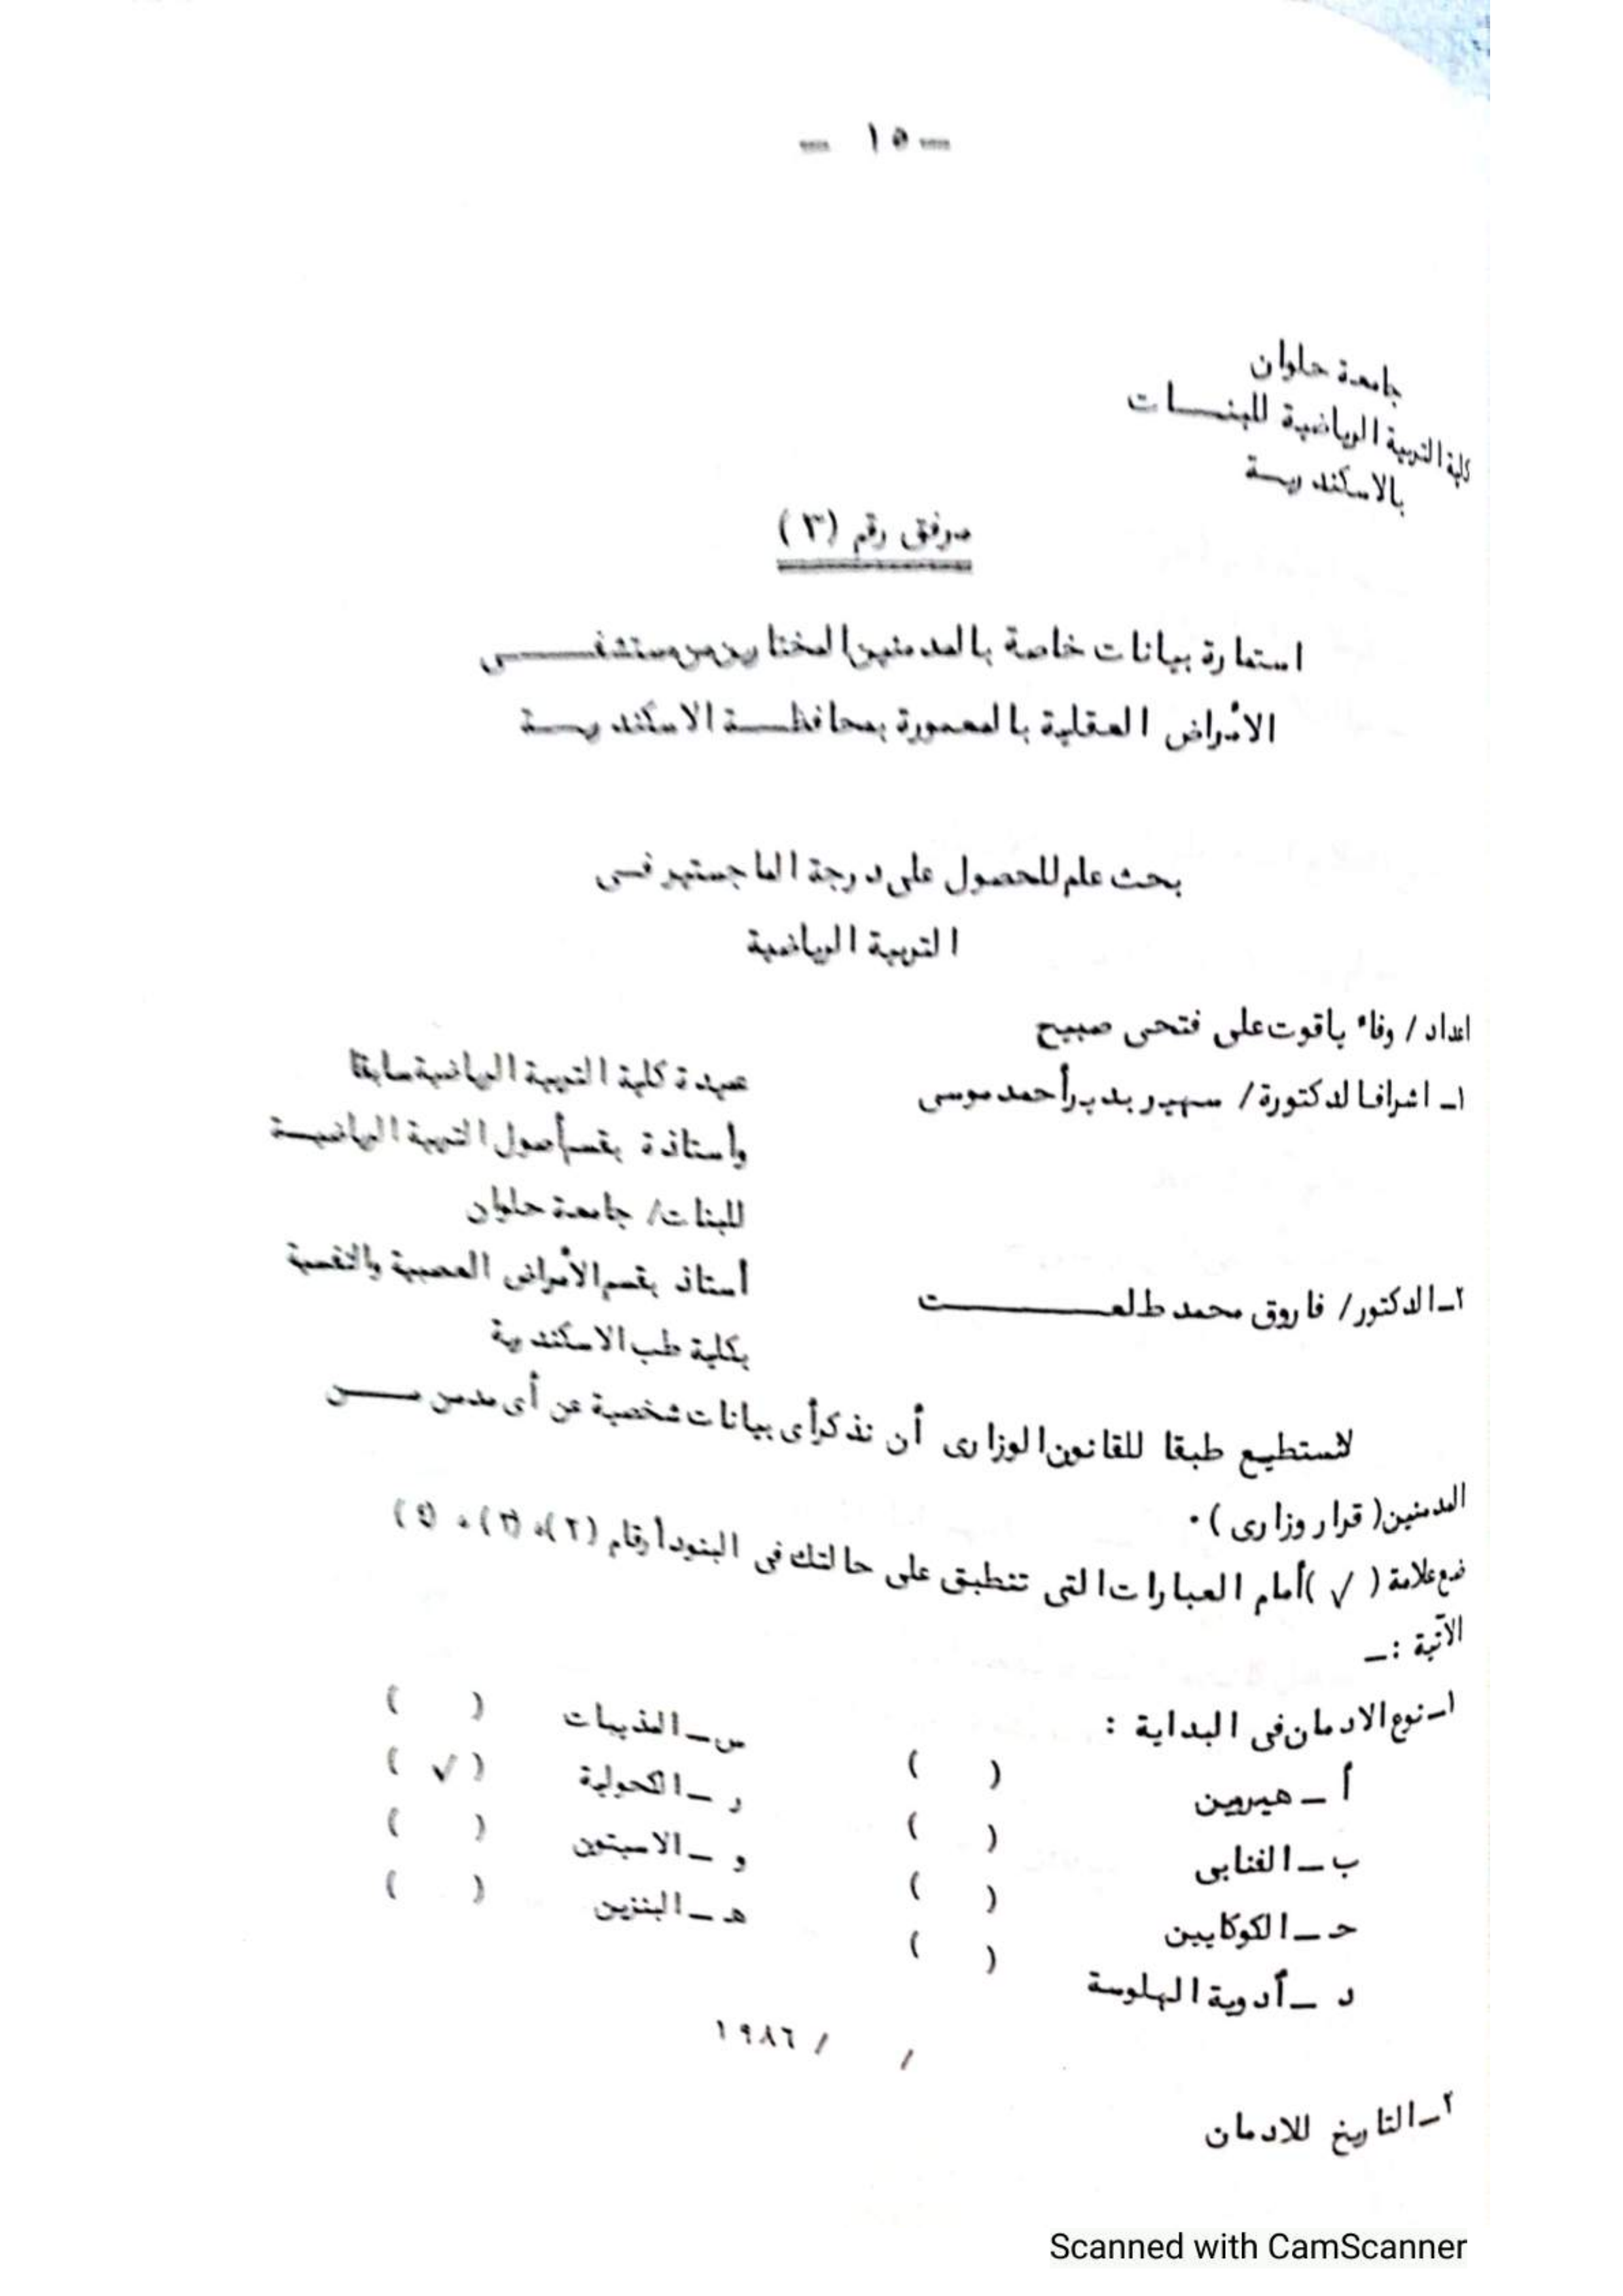 — ١٥ —
جامعة حلوان
كلية التربية الرياضية للبنـــات
بالاسكندريـة
مرفق رقم (٣)
استمارة بيانات خاصة بالمدمنين المختارين من مستشفـــى
الأمراض العقلية بالمعمورة بمحافظــة الاسكندريــة
بحث علم للحصول على درجة الماجستير فـى
التربية الرياضية
اعداد / وفاء ياقوت على فتحى صبيح
١ـ اشراف الدكتورة / سهير بدير أحمد موسى
عميدة كلية التربية الرياضية سابقا
وأستاذة بقسم أصول التربية الرياضيــة
للبنات / جامعة حلوان
٢ـ الدكتور / فاروق محمد طلعـــــت
أستاذ بقسم الأمراض العصبية والنفسية
بكلية طب الاسكندرية
لانستطيع طبقا للقانون الوزارى أن نذكر أى بيانات شخصية عن أى مدمن مـــن
المدمنين ( قرار وزارى ) ٠
ضع علامة ( √ ) أمام العبارات التى تنطبق على حالتك فى البنود أرقام (٢) ، (٣) ، (٤)
الآتية :ـ
١ـ نوع الادمان فى البداية :
أ ـ هيروين ( )
ب ـ الفنابى ( )
حـ ـ الكوكايين ( )
د ـ أدوية الهلوسة ( )
س ـ المذيبات ( )
ر ـ الكحولية ( √ )
و ـ الاسيتون ( )
هـ ـ البنزين ( )
٢ـ التاريخ للادمان / / ١٩٨٦
Scanned with CamScanner